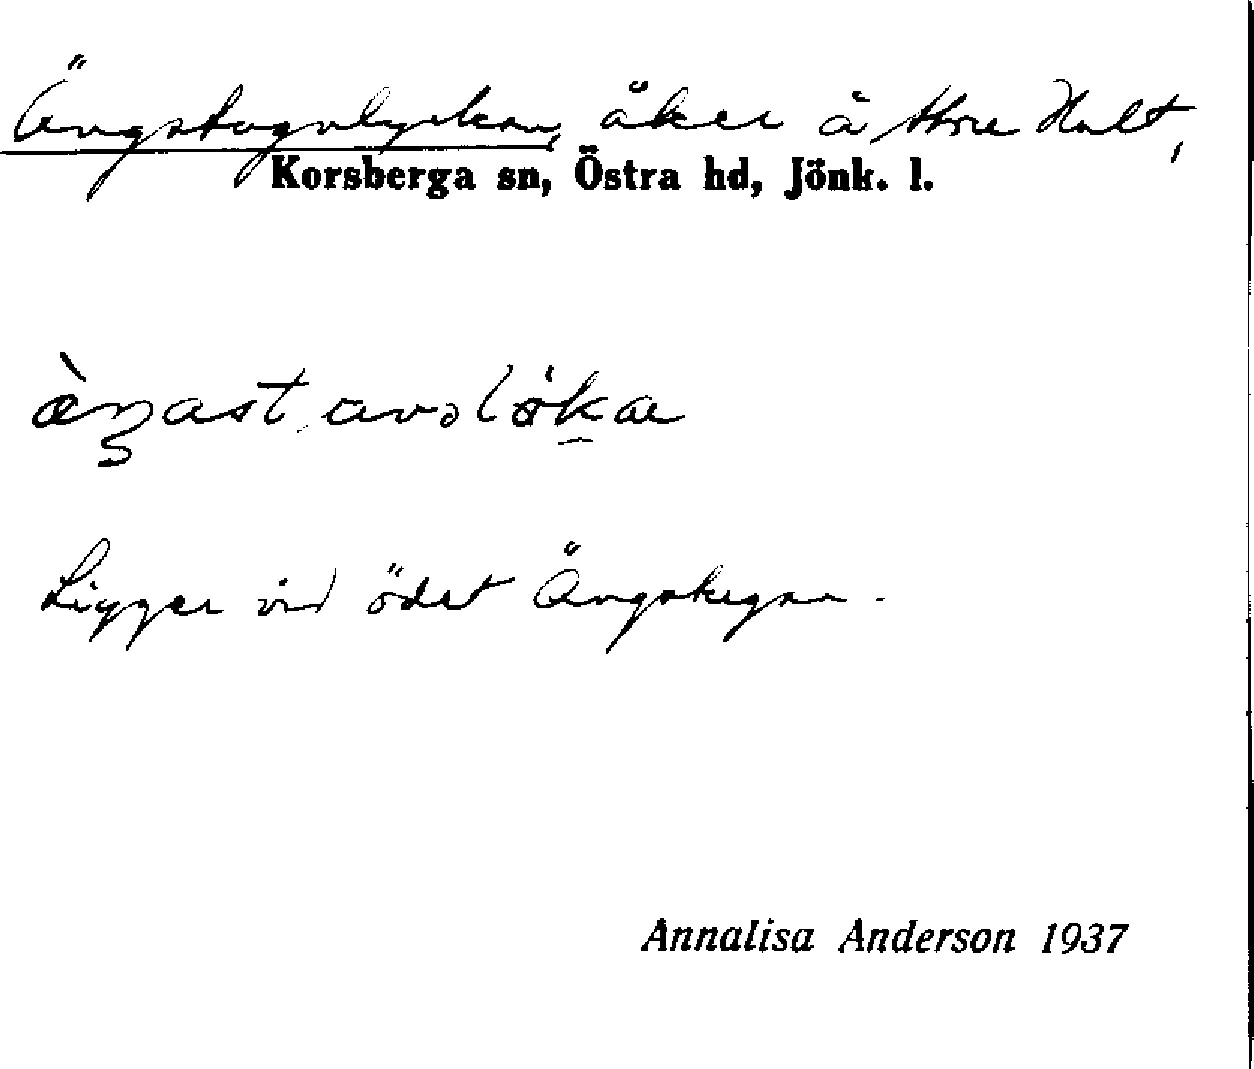 Ängstugulyckan, åker å Store Hult,
Korsberga sn, Östra hd, Jönk. l.
Ligger vid ödet Ängstugan.
Annalisa Anderson 1937